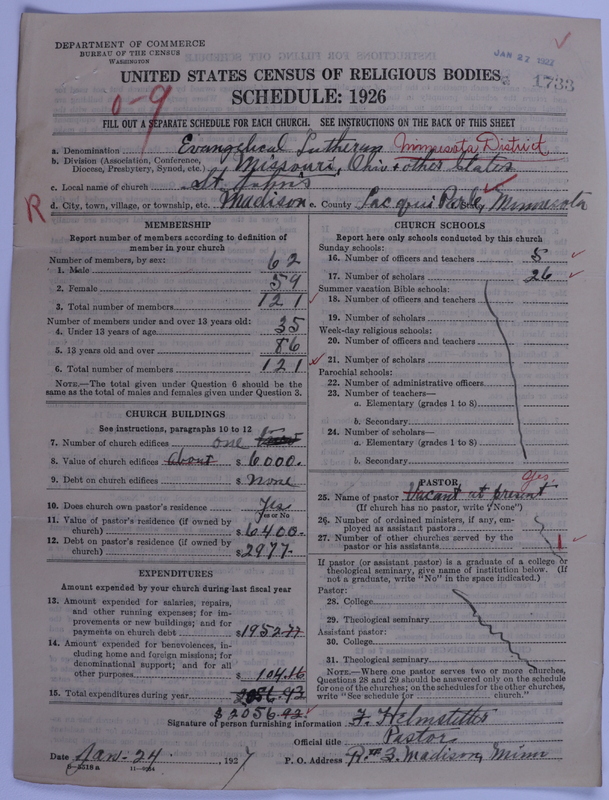 DEPARTMENT OF COMMERCE
BUREAU OF THE CENSUS
WASHINGTON
JAN 27 1927
1733
UNITED STATES CENSUS OF RELIGIOUS BODIES
SCHEDULE: 1926
0-9
FILL OUT A SEPARATE SCHEDULE FOR EACH CHURCH. SEE INSTRUCTIONS ON THE BACK OF THIS SHEET
a. Denomination Evangelical Lutheran Minnesota District
b. Division (Association, Conference, Diocese, Presbytery, Synod, etc.) Missouri, Ohio + other States
c. Local name of church St. John's
R
d. City, town, village, or township, etc. Madison e. County Lac qui Parle, Minnesota
MEMBERSHIP
Report number of members according to definition of member in your church
Number of members, by sex:
1. Male 62
2. Female 59
3. Total number of members 121
Number of members under and over 13 years old:
4. Under 13 years of age 35
5. 13 years old and over 86
6. Total number of members 121
NOTE.—The total given under Question 6 should be the same as the total of males and females given under Question 3.
CHURCH BUILDINGS
See instructions, paragraphs 10 to 12
7. Number of church edifices one
8. Value of church edifices about $ 6000.
9. Debt on church edifices $ None
10. Does church own pastor's residence Yes
Yes or No
11. Value of pastor's residence (if owned by church) $ 6400.
12. Debt on pastor's residence (if owned by church) $ 2977.
EXPENDITURES
Amount expended by your church during last fiscal year
13. Amount expended for salaries, repairs, and other running expenses; for improvements or new buildings; and for payments on church debt $ 1952.77
14. Amount expended for benevolences, including home and foreign missions; for denominational support; and for all other purposes 104.16
15. Total expenditures during year 2056.93
$ 2056.92
CHURCH SCHOOLS
Report here only schools conducted by this church
Sunday schools:
16. Number of officers and teachers 5
17. Number of scholars 26
Summer vacation Bible schools:
18. Number of officers and teachers
19. Number of scholars
Week-day religious schools:
20. Number of officers and teachers
21. Number of scholars
Parochial schools:
22. Number of administrative officers
23. Number of teachers—
a. Elementary (grades 1 to 8)
b. Secondary
24. Number of scholars—
a. Elementary (grades 1 to 8)
b. Secondary
PASTOR yes
25. Name of pastor Vacant at present
(If church has no pastor, write "None")
26. Number of ordained ministers, if any, employed as assistant pastors
27. Number of other churches served by the pastor or his assistants 1
If pastor (or assistant pastor) is a graduate of a college or theological seminary, give name of institution below. (If not a graduate, write "No" in the space indicated.)
Pastor:
28. College
29. Theological seminary
Assistant pastor:
30. College
31. Theological seminary
NOTE.—Where one pastor serves two or more churches, Questions 28 and 29 should be answered only on the schedule for one of the churches; on the schedules for the other churches, write "See schedule for church."
Signature of person furnishing information F. Helmstetter
Official title Pastor
Date Jan. 24, 1927
P. O. Address R. #3. Madison, Minn
8-5518 a 11-9084